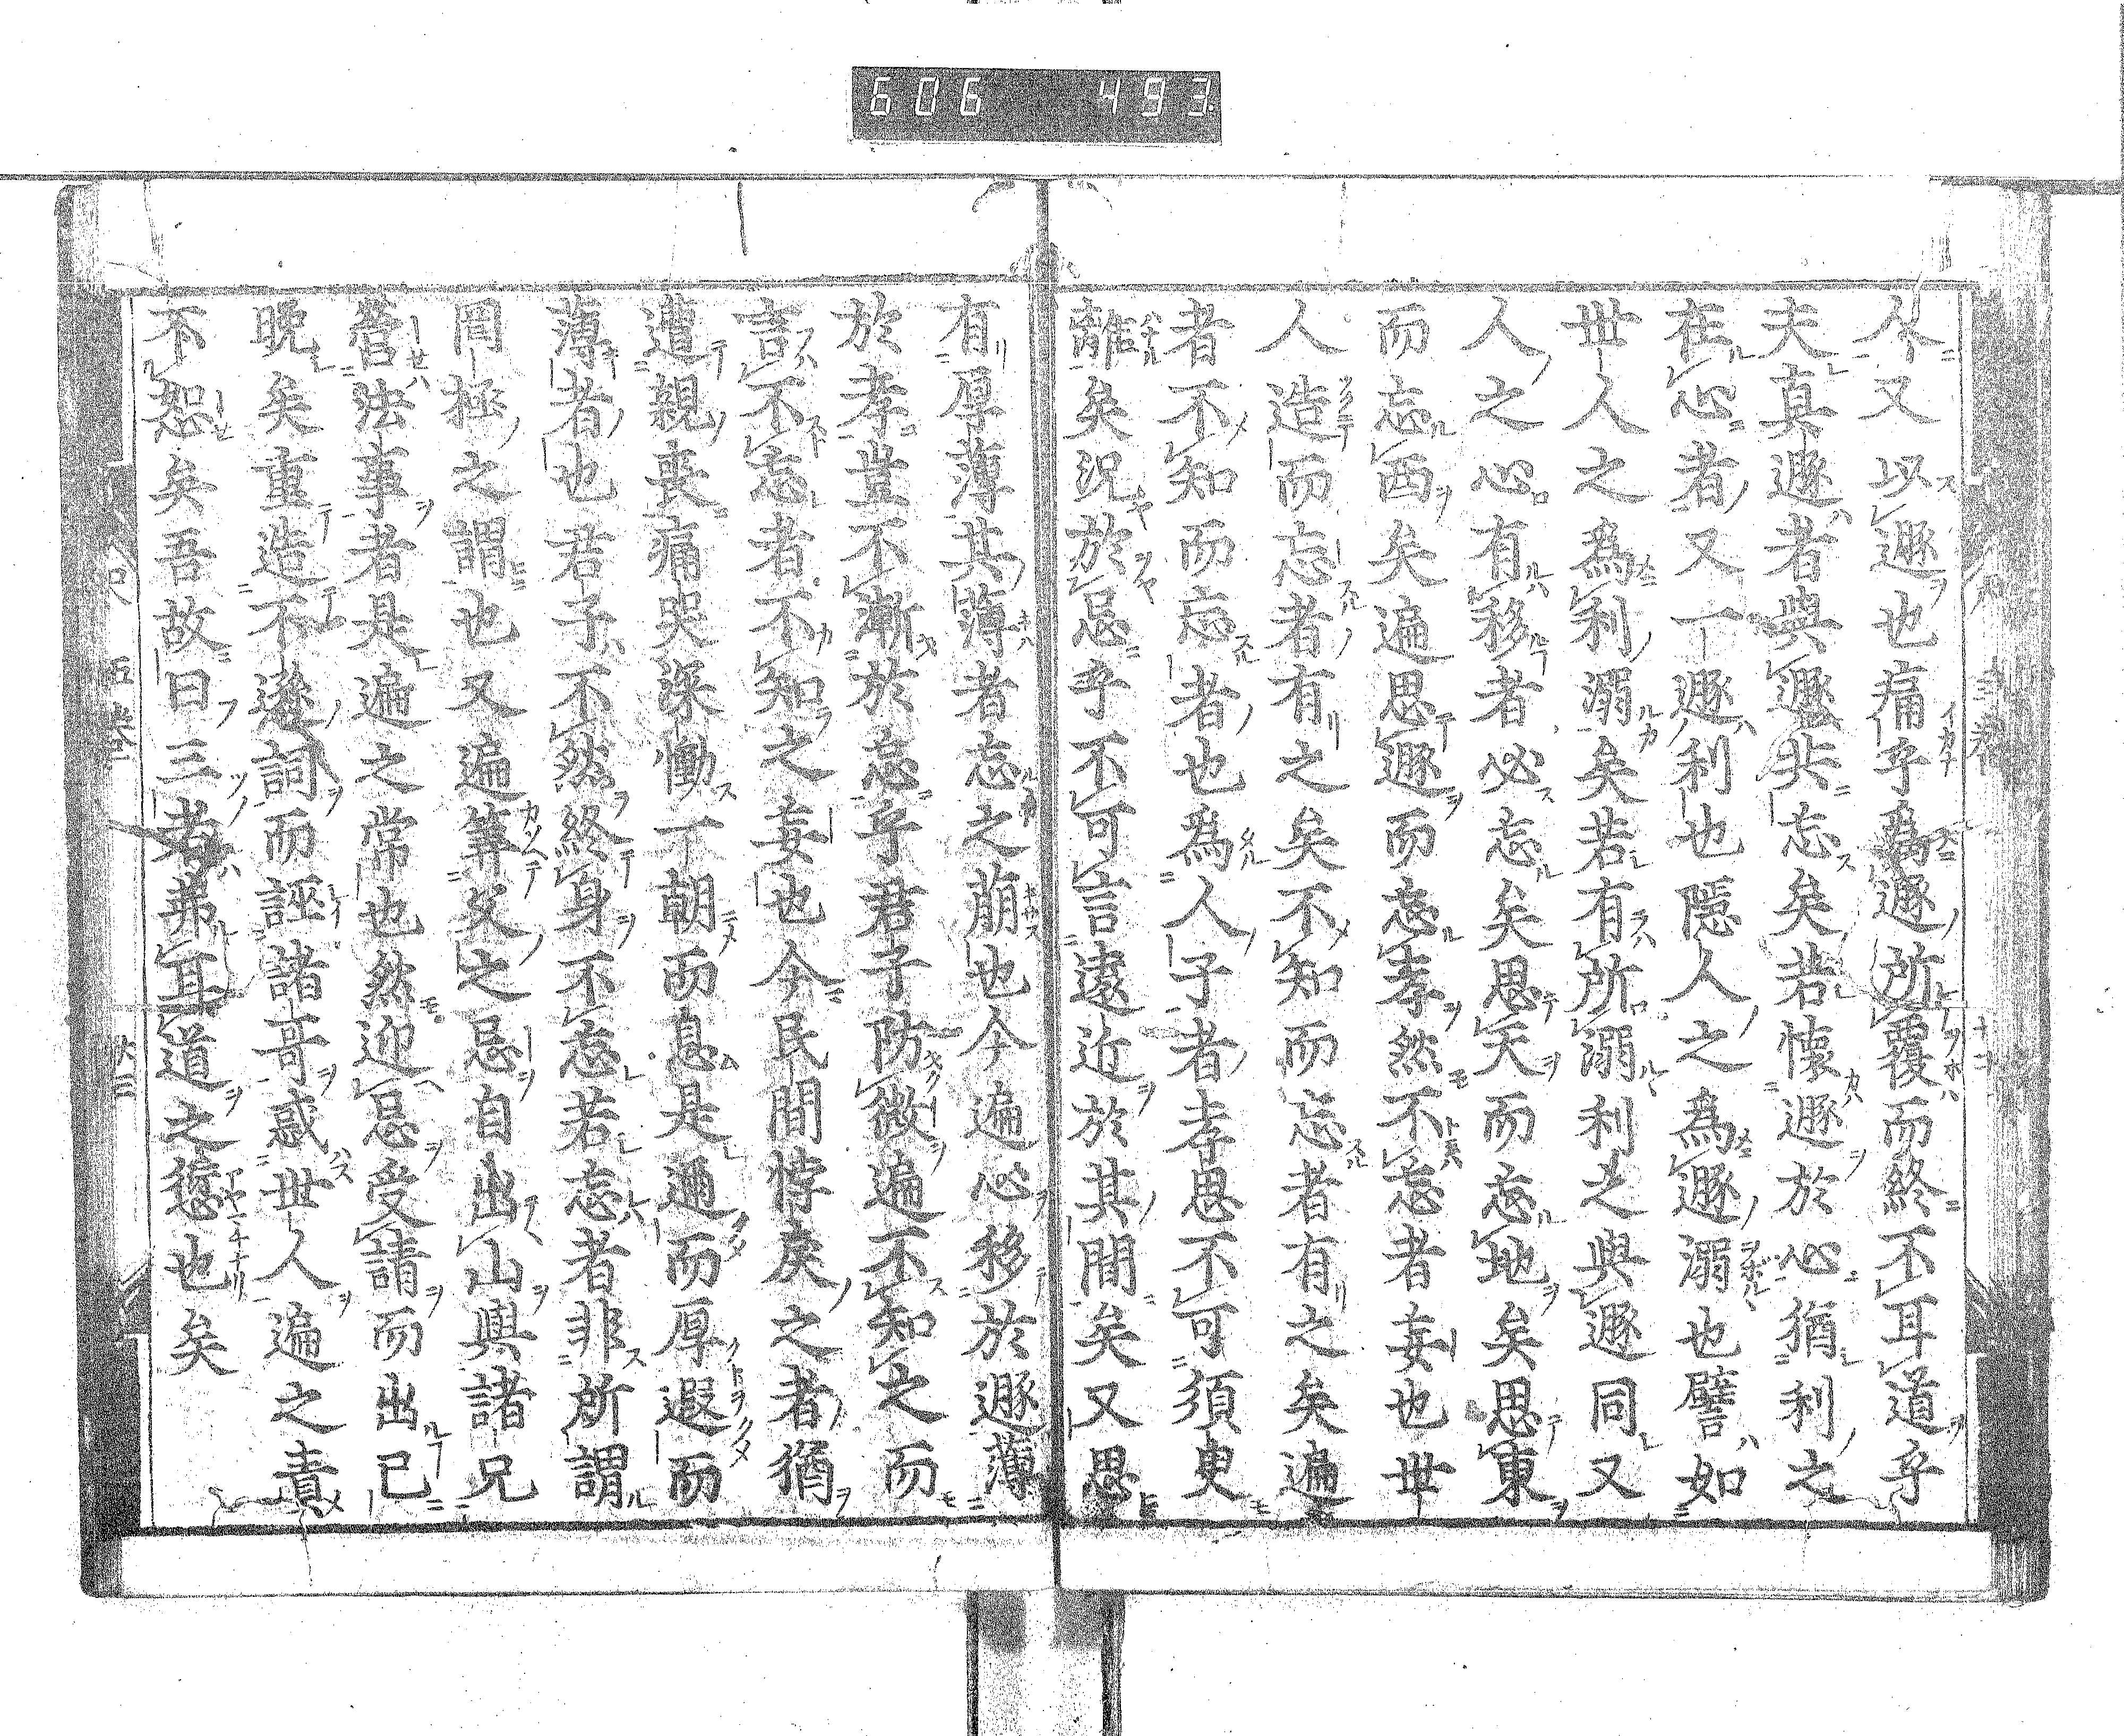 606 493
人又以遯也痛乎為遯所覆而終不耳道乎
夫真遯者與遯共忘矣若懷遯於心猶利之
在心者又一遯利也隱人之為遯溺也譬如
世人之為利溺矣若有所溺利之與遯同又
人之心有移者必忘矣思天而忘地矣思東
而忘西矣遍思遯而忘孝然不忘者妄也世
人造而忘者有之矣不知而忘者有之矣遍
者不知而忘者也為人子者孝思不可須臾
離矣況於忌乎不可言遠近於其間矣又思
有厚薄其薄者忘之萠也今遍心移於遯薄
於孝豈不漸於忘乎君子防微遍不知之而
言不忘者不知之妄也今民間悖戾之者猶
遭親喪痛哭深慟一朝而息是邇而厚遐而
薄者也君子不然終身不忘若忘者非所謂
罔極之謂也又遍筭父之忌自出山與諸兄
營法事者是遍之常也然迎忌受請而出已
晩矣重造不遜詞而誣諸哥惑世人遍之責
不恕矣吾故曰三者弗耳道之愆也矣